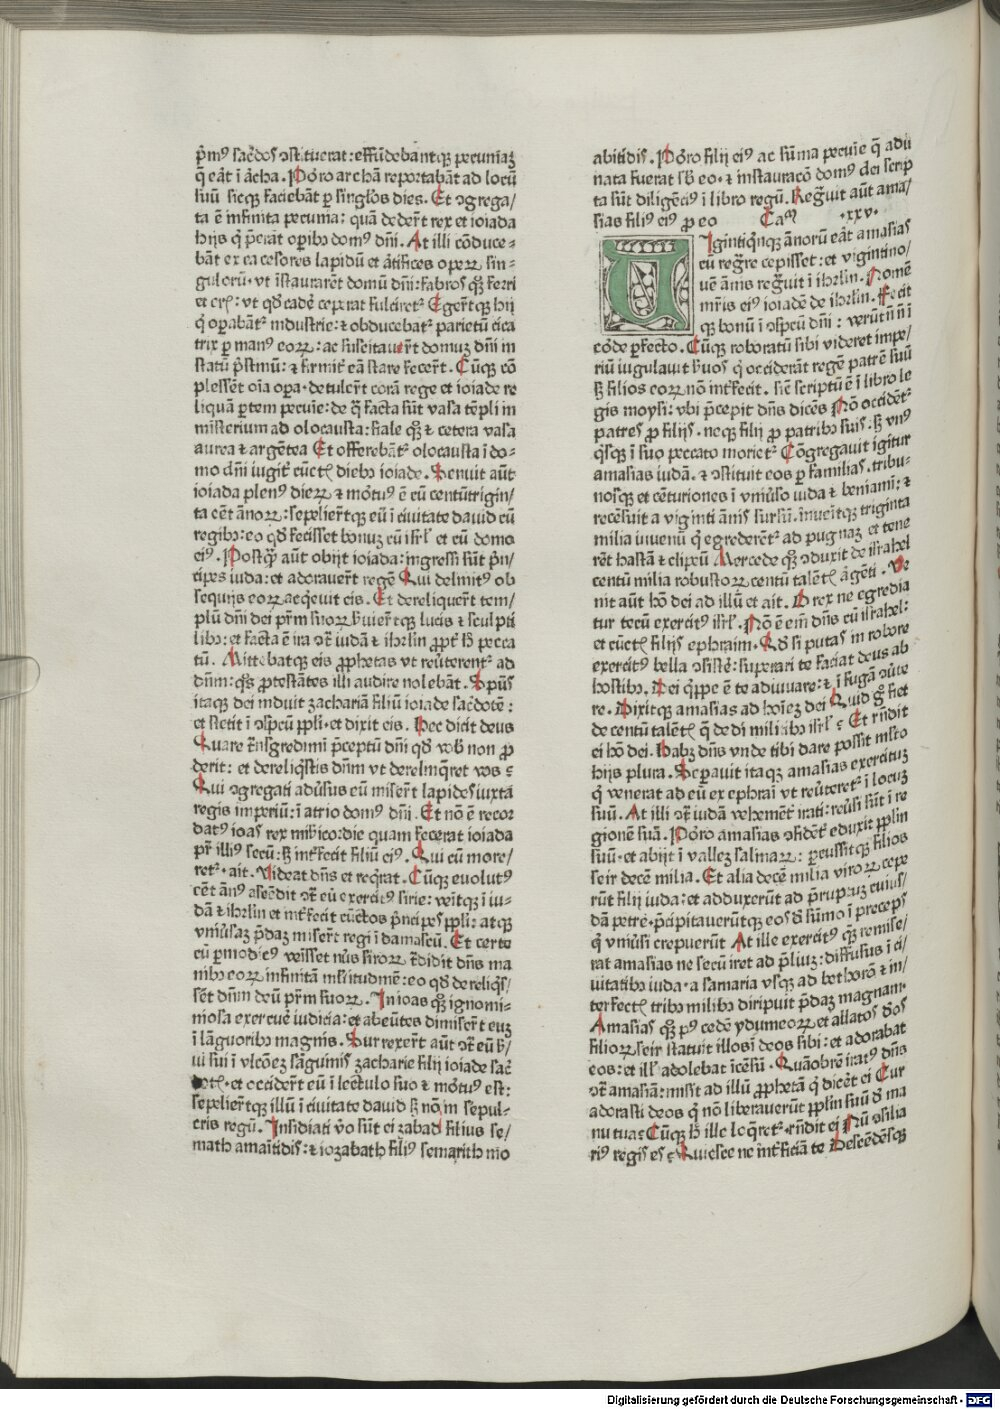 p̄mꝰ sac̄dos ꝯstituerat: effūdebāntqꝫ pecuniaꝫ
q̄ eāt ī ārcha. Poro archā reportabāt ad locū
suū sicqꝫ faciebāt ꝑ singłos dies. Et ꝯgrega/
ta ē infinita pecunia: quā dederūt rex et ioiada
hijs q̇ p̄erāt oꝑibꝫ domꝰ dn̄i. At illi cōduce-
bāt ex ea cesores lapidū et artifices oꝑeꝝ sin-
guloꝝ· vt īstaurarēt domū dn̄i: fabros qꝫ ferri
et eris: vt qd̄ cadē ceperat fulciret᷑ Egerūtqꝫ hij
q̇ oꝑabāt᷑ industrie: ⁊ obducebat᷑ parietū cica
trix ꝑ manꝰ eoꝝ: ac suscitauerūt domuꝫ dn̄i in
statū p̄stinū: ⁊ firmit̄ eā stare fecerūt. Cūqꝫ cō
plessēt oīa oꝑa· detulerūt corā rege et ioiade re
liquā ꝑtem pecuīe: de q̄ facta sūt vasa tēpli in
misterium ad olocausta: fiale qꝫ ⁊ cetera vasa
aurea ⁊ argētea Et offerebāt᷑ olocausta ī do-
mo dn̄i iugit̄ cūctꝭ diebꝫ ioiade. Senuit aūt
ioiada plenꝰ dieꝝ ⁊ mōtuꝰ ē cū centūtrigin/
ta eēt ānoꝝ: sepelierūtqꝫ eū ī ciuitate dauid cū
regibꝫ: eo qd̄ fecisset bonuꝫ cū isrl̄ et cū domo
eiꝰ. Postq̄ꝫ aūt obijt ioiada: ingressi sūt p̄n-
cipes iuda: et adorauerūt regē Qui delinitꝰ ob
sequijs eoꝝ acqeuit eis. Et dereliquerūt tem/
plū dn̄i dei pr̄m suoꝝ ẜuierūtqꝫ lucis ⁊ sculpti
libꝫ: et facta ē ira ꝯt̄ iudā ⁊ ihrl̄m ꝓpt̄ h̄ pecca
tū. Mittebatqꝫ eis ꝓphetas vt reūterent᷑ ad
dn̄m: q̄s ꝓtestātes illi audire nolebāt. Spūs
itaqꝫ dei induit zachariā filiū ioiade sac̄dotē:
et stetit ī ꝯspc̄u ppl̄i· et dixit eis. Hec dicit deus
Quare trāsgredimī p̄ceptū dn̄i qd̄ vob̄ non ꝓ
derit: et dereliqstis dn̄m vt derelinq̄ret vos
Qui ꝯgregati aduſus eū miserūt lapides iuxta
regis imperiū: ī atrio domꝰ dn̄i. Et nō ē recor
datꝰ ioas rex mīsc̄die quam fecerat ioiada
pr̄ illiꝰ secū: sꝫ int̄fecit filiū eiꝰ. Qui cū more/
ret᷑· ait. Videat dn̄s et reqrat. Cūqꝫ euolutꝰ
eēt ānꝰ ascēdit ꝯt̄ eū exercitꝰ sirie: veītqꝫ ī iu-
dā ⁊ ihrl̄m et int̄fecit cūctos p̄ncipes ppl̄i: atqꝫ
vniūsaꝫ p̄daꝫ miserūt regi ī damascū. Et certe
cū ꝑmodicꝰ venisset nūs siroꝝ t̄didit dn̄s ma
nibꝫ eoꝝ infinitā mltitudinē: eo qd̄ dereliqs/
sēt dn̄m deū pr̄m suoꝝ. In ioas qꝫ ignomi-
niosa exercuēt iudicia: et abeūtes dimiserūt eum
ī lāguoribꝫ magnis. Surrexerūt aūt ꝯt̄ eū ẜ/
ui sui ī vlcōeꝫ sāguinis zacharie filij ioiade sac̄
dotꝭ· et occiderūt eū ī lectulo suo ⁊ mōtuꝰ est:
sepelierūtqꝫ illū ī ciuitate dauid sꝫ nō in sepul-
cris regū. Insidiati ūo sūt ei zabad filius se/
math amaītidis: ⁊ iozabath filiꝰ semarith mo
abitidis. Poro filij eiꝰ ac sūma pecuīe q̄ adu
nata fuerat sb̄ eo· ⁊ instauracō domꝰ dei scrip
ta sūt diligēciꝰ ī libro regū. Regr̄uit aūt ama/
sias filiꝰ eiꝰ ꝓ eo Cam ·xxv·
VIgintiqnqꝫ ānorū eāt amasias
cū regr̄e cepisset: et vigintino/
uē ānis regr̄uit ī ihrl̄m. Nomē
mr̄is eiꝰ ioiadē de ihrl̄m. Fecit
qꝫ bonū ī ꝯspc̄u dn̄i: verūtn̄ n̄ ī
cōde ꝑfecto. Cūqꝫ roboratū sibi videret impe/
riū iugulauit ẜuos q̇ occiderāt regē patrē suū
sꝫ filios eoꝝ nō int̄fecit. sic̄ scriptū ē ī libro le
gis moysi: vbi p̄cepit dn̄s dicēs Nō occidēt᷑
patres ꝓ filijs· neqꝫ filij ꝓ patribꝫ suis· sꝫ vnꝰ
qsqꝫ ī suo peccato moriet᷑ Cōgregauit igitur
amasias iudā· ⁊ ꝯstituit eos ꝑ familias· tribu-
nosqꝫ et cēturiones ī vniūso iuda ⁊ beniamī: ⁊
recēsuit a viginti ānis sursū· īuenitqꝫ triginta
milia iuuenū q̇ egrederēt᷑ ad pugnaꝫ et tene
rēt hastā ⁊ clipeū Mercede qꝫ ꝯduxit de israhel
centū milia robustoꝝ centū talētꝭ āgēti. Ve
nit aūt hō dei ad illū et ait. O rex ne egredia
tur tecū exercitꝰ isrl̄. Nō ē eīm dn̄s cū israhel:
et cūctꝭ filijs ephraim. Qd̄ si putas in robore
exercitꝰ bella ꝯsistē: suꝑari te faciat deus ab
hostibꝫ. Dei qꝑpe ē te adiuuare: ⁊ ī fugā ꝯūte
re. Dixitqꝫ amasias ad hoīeꝫ dei Quid gͦ fiet
de centū talētꝭ q̄ dedi militibꝫ isrl̄ Et rn̄dit
ei hō dei. Habꝫ dn̄s vnde tibi dare possit mlto
hijs plura. Seꝑauit itaqꝫ amasias exercituꝫ
q̇ venerat ad eū ex ephraī vt reūteret᷑ ī locuꝫ
suū. At illi ꝯt̄ iudā vehemēt̄ irati: reūsi sūt ī re
gionē suā. Poro amasias ꝯfidēt̄ eduxit ppl̄m
suū· et abijt ī valleꝫ salinaꝝ: ꝑcussitqꝫ filios
seir decē milia. Et alia decē milia viroꝝ cepe
rūt filij iuda: et adduxerūt ad p̄rupꝫ cuius/
dā petre· p̄cipitauerūtqꝫ eos d̄ sūmo ī preceps
q̇ vniūsi crepuerūt At ille exercitꝰ qꝫ remise/
rat amasias ne secū iret ad p̄liuꝫ: diffusus ī ci/
uitatibꝫ iuda· a samaria vsqꝫ ad bethorō ⁊ in/
terfectꝭ tribꝫ milibꝫ diripuit p̄daꝫ magnam.
Amasias qꝫ pꝰ cedē ydumeoꝝ et allatos d̄os
filioꝝ seir statuit illos ī deos sibi: et adorabat
eos: et ill̄ adolebat īcēsū. Quāobrē iratꝰ dn̄s
ꝯt̄ amasiā: misit ad illū ꝓphetā q̇ dicēt ei Cur
adorasti deos q̇ nō liberauerūt ppl̄m suū d̄ ma
nu tua Cūqꝫ h̄ ille loqret᷑· rn̄dit ei Nū ꝯsilia
riꝰ regis es Quiesce ne int̄ficiā te Descēdēsqꝫ
Digitalisierung gefördert durch die Deutsche Forschungsgemeinschaft - DFG